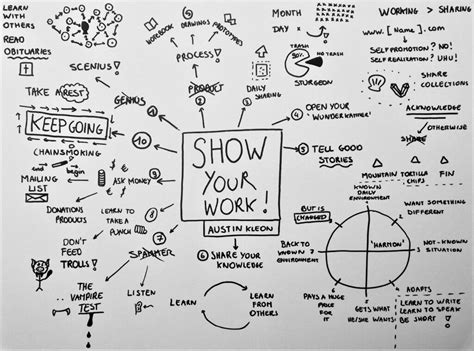 LEARN WITH OTHERS
READ OBITUARIES
SCENIUS!
TAKE A REST
GENIUS
1
NOTEBOOK
DRAWINGS
PROTOTYPES
PROCESS!
PRODUCT
2
MONTH
DAY ×
DAILY SHARING
3
TRASH
90%
NO TRASH
STURGEON
WORKING > SHARING
www.[Name].com
SELF PROMOTION? NO!
SELF REALIZATION? UHU!
SHARE COLLECTIONS
4 OPEN YOUR 'WUNDERKAMMER'
ACKNOWLEDGE
OTHERWISE
SHARE
5 TELL GOOD STORIES
MOUNTAIN
TORTILLA CHIPS
FIN
KEEP GOING
10
CHAINSMOKING
end
begin
MAILING LIST
ASK MONEY
9
DONATIONS
PRODUCTS
SHOW YOUR WORK!
AUSTIN KLEON
LEARN TO TAKE A PUNCH
8
DON'T FEED TROLLS!
SPAMMER
7
THE VAMPIRE TEST
LISTEN
6 SHARE YOUR KNOWLEDGE
LEARN
LEARN FROM OTHERS
KNOWN DAILY ENVIRONMENT
WANT SOMETHING DIFFERENT
BUT IS CHANGED
"HARMON"
BACK TO KNOWN ENVIRONMENT
NOT-KNOWN SITUATION
PAYS A HUGE PRICE FOR IT
GETS WHAT HE/SHE WANTS
ADAPTS
LEARN TO WRITE
LEARN TO SPEAK
BE SHORT!